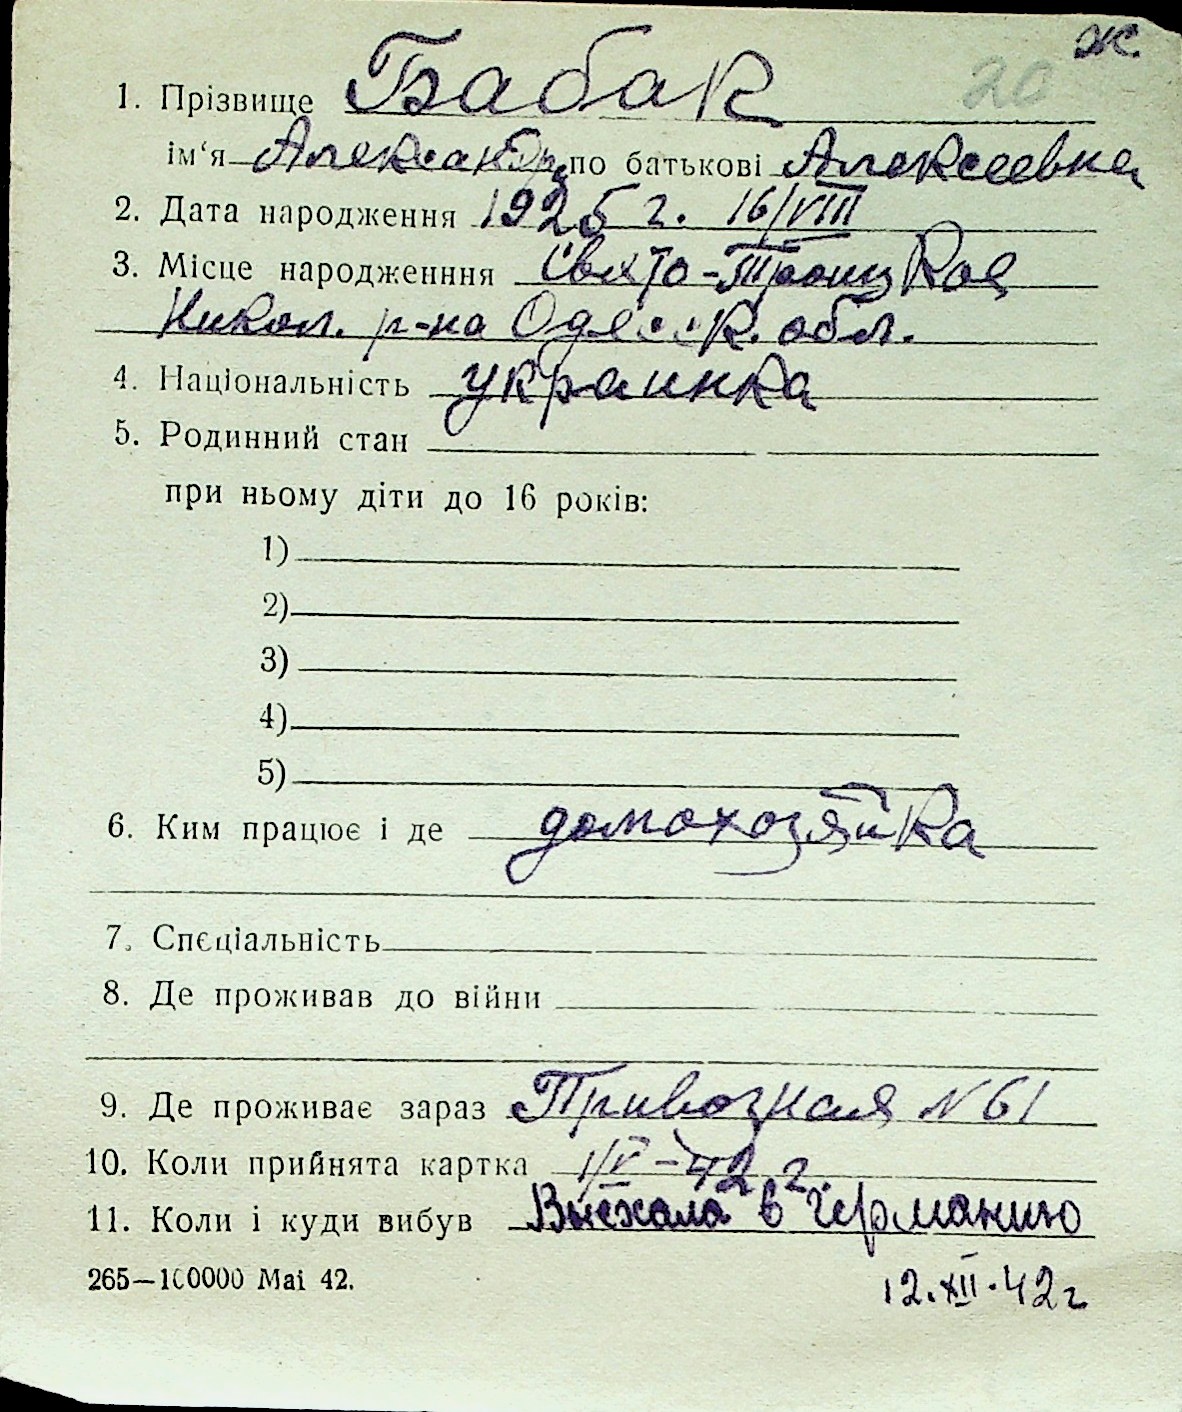 ж.
20
1. Прізвище Бабак
ім‘я Александра по батькові Алексеевна
2. Дата народження 1925 г. 16/VIII
3. Місце народженння Свято-Троицкая
Никол. р-на Одесск. обл.
4. Національність украинка
5. Родинний стан
при ньому діти до 16 років:
1)
2)
3)
4)
5)
6. Ким працює і де домохозяйка
7. Спєціальність
8. Де проживав до війни
9. Де проживає зараз Привозная № 61
10. Коли прийнята картка 1/V-42 г
11. Коли і куди вибув Выехала в Германию
265—100000 Mai 42.
12.XII.42 г